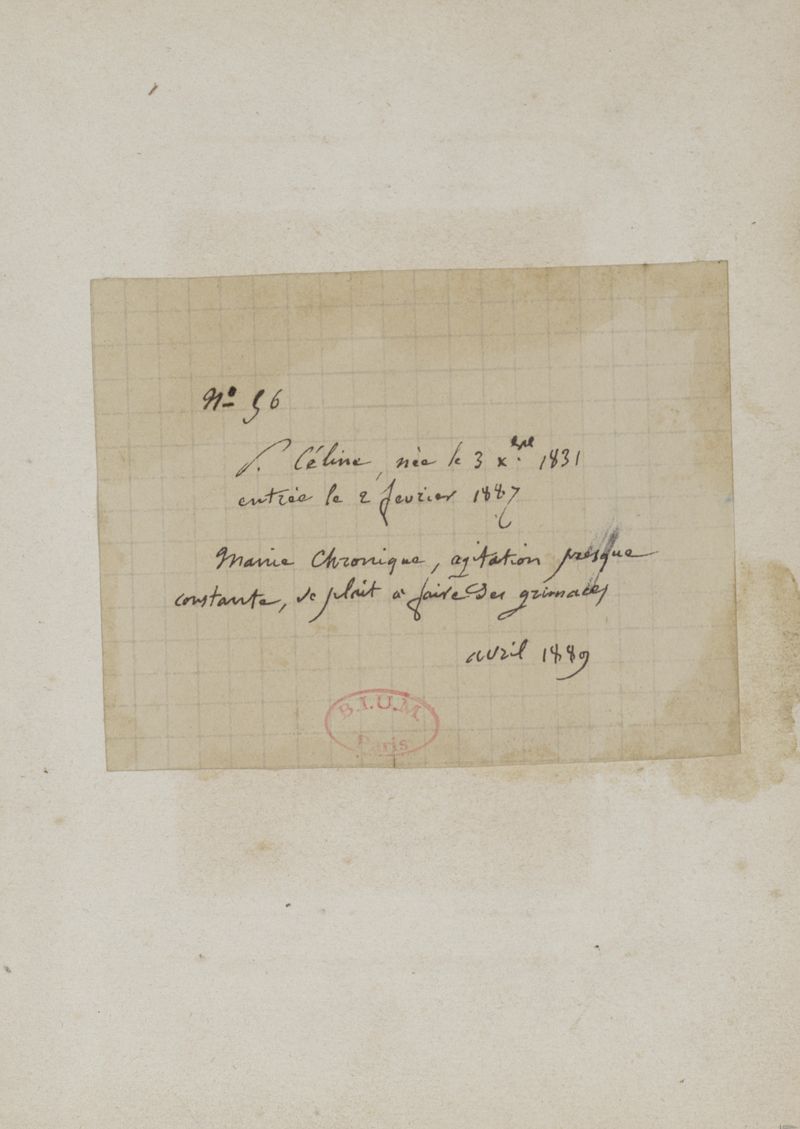 No 56
P. Céline, née le 3 xbre 1831
entrée le 2 fevrier 1887
Manie Chronique, agitation presque
constante, se plait à faire des grimaces
avril 1889
B.I.U.M.
Paris